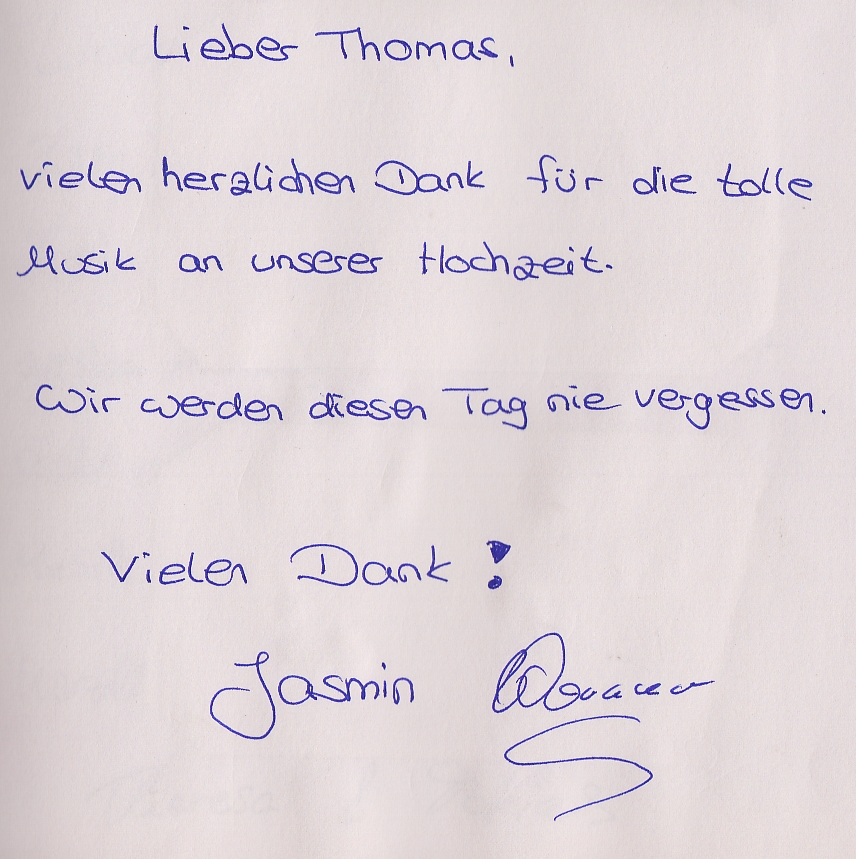 Lieber Thomas,
vielen herzlichen Dank für die tolle
Musik an unserer Hochzeit.
Wir werden diesen Tag nie vergessen.
Vielen Dank!
Jasmin